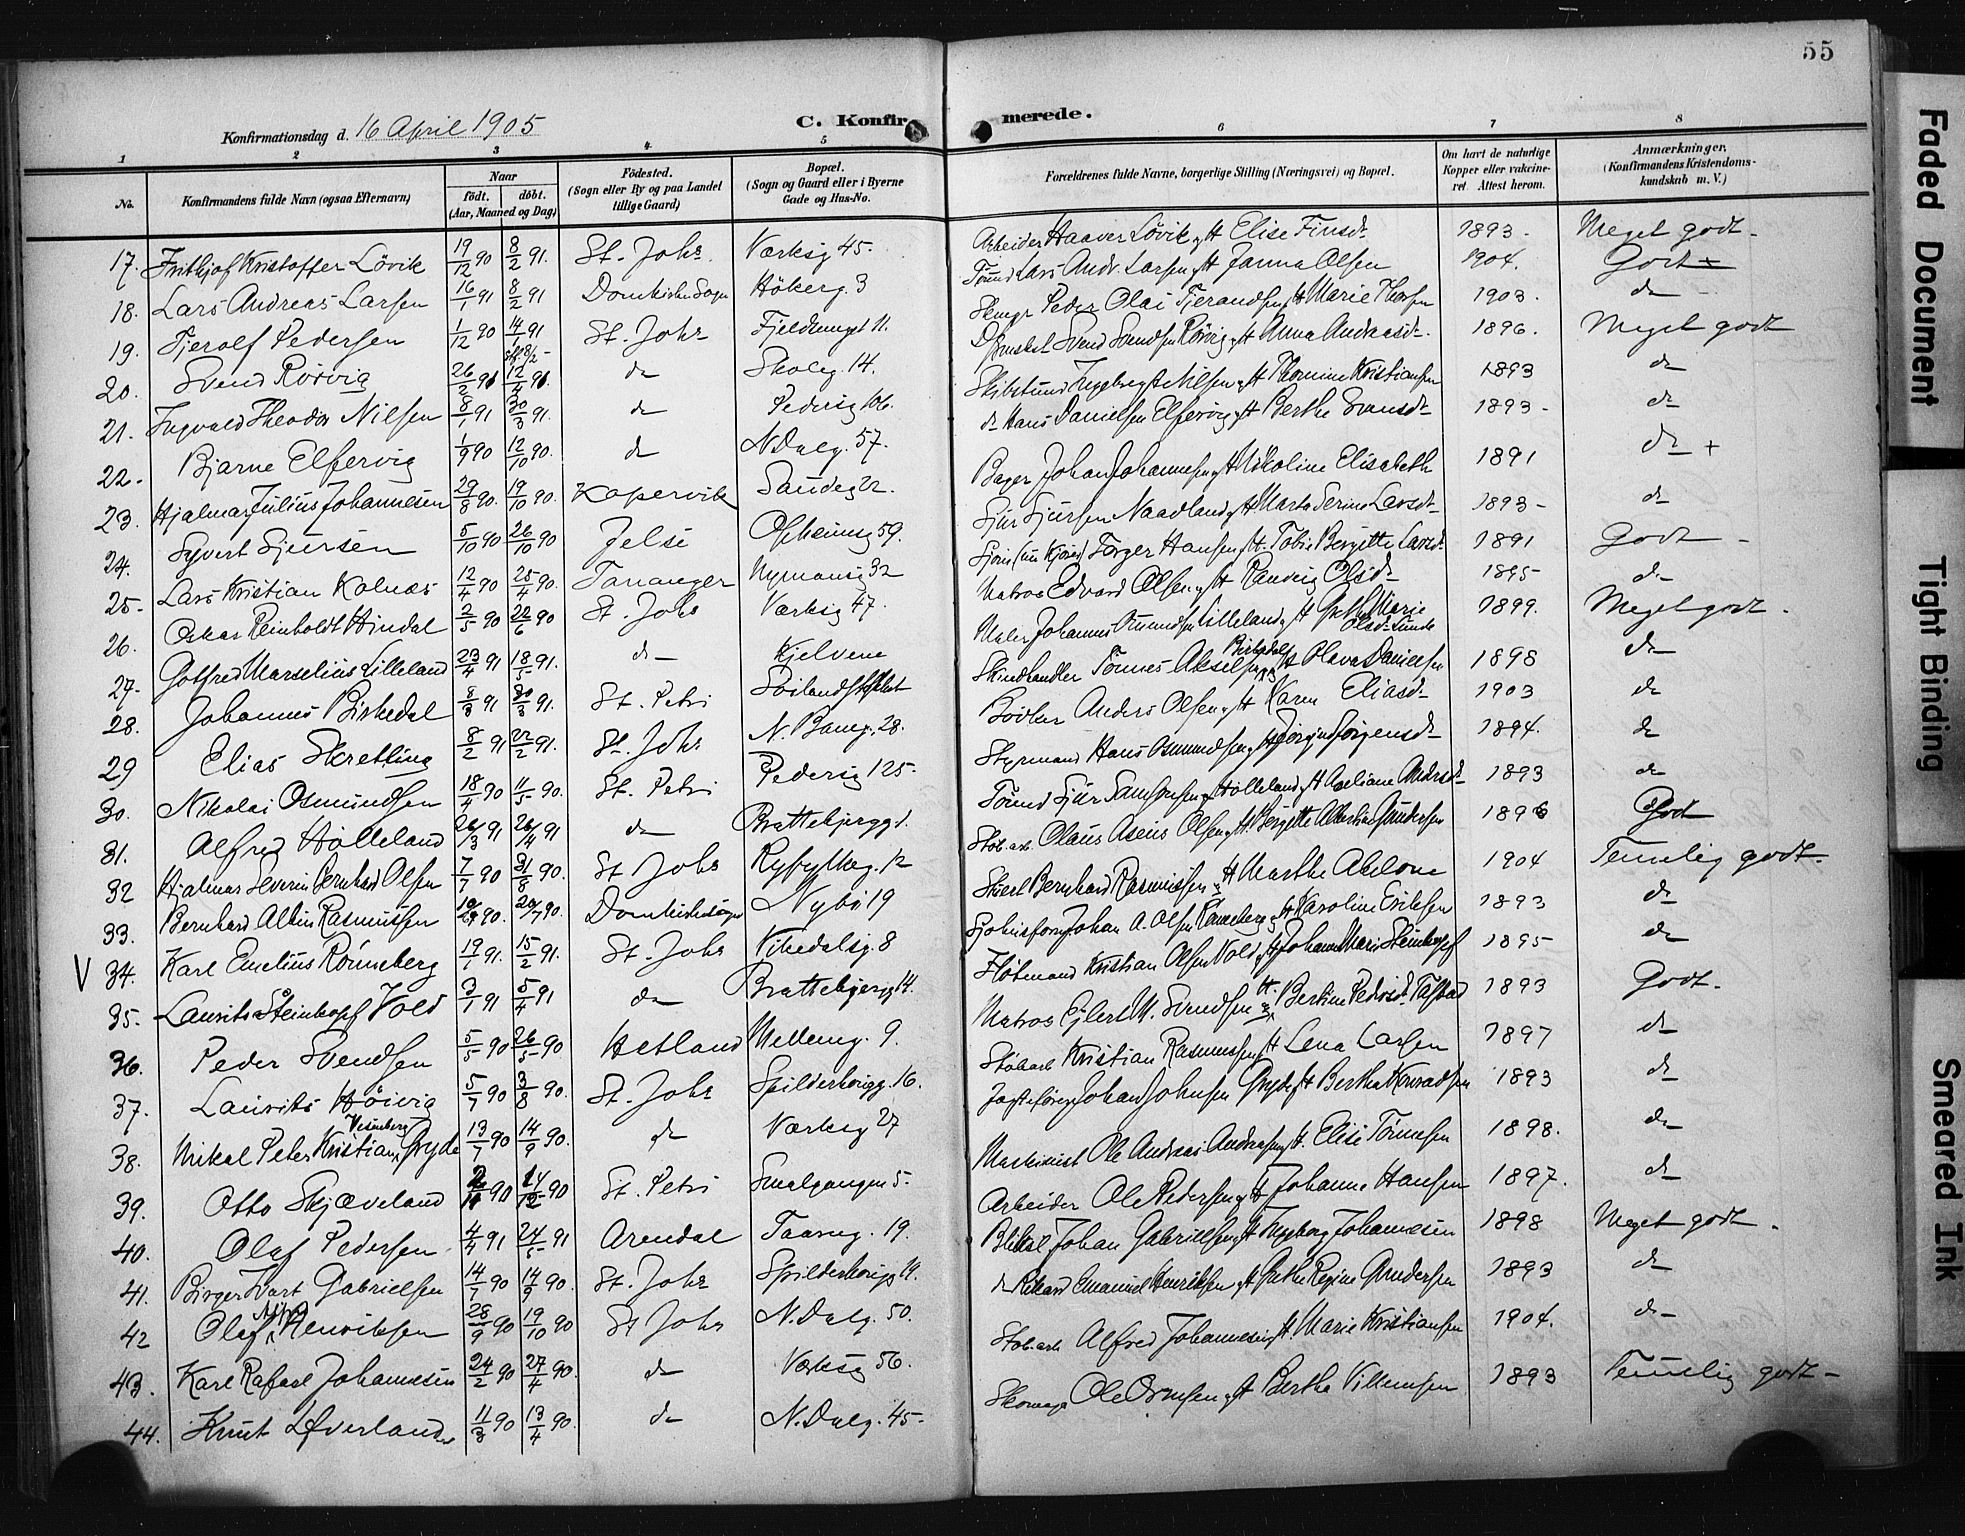 55
Konfirmationsdag d. 16 April 1905
C. Konfir
merede.
1 2 3 4 5 6 7 8
No.
Konfirmandens fulde Navn (ogsaa Efternavn)
Naar
født. døbt.
(Aar, Maaned og Dag)
Fødested.
(Sogn eller By og paa Landet
tillige Gaard)
Bopæl.
(Sogn og Gaard eller i Byerne
Gade og Hus-No.
Forældrenes fulde Navne, borgerlige Stilling (Næringsvei) og Bopæl.
Om havt de naturlige
Kopper eller vakcine-
ret. Attest herom.
Anmærkninger.
(Konfirmandens Kristendoms-
kundskab m. V.)
17. Frithjof Kristoffer Lövik 19/12 90 8/2 91. St. Johs. Værksg 45. Arbeider Haaver Lövik og H Elise Finsdr 1893. Meget godt.
18. Lars Andreas Larsen 16/1 91 8/2 91 Domkirkes Sogn Hökerg. 3 Tömmd Lars Andr. Larsen og H Janna Olsen 1904. Godt
19. Tjerolf Pedersen 1/12 90 14/1 91 St. Johs Fjeldtunget 11. Peder Olai Tjerandsen og H Marie 1903. do
20. Svend Rörvig 26/2 91 12/4 91. do Skoleg. 14. Svend Svendsen Rörvig og H Anna Andreasdr. 1896. Meget godt
21. Ingvald Theodor Nilsen 8/1 91 30/3 91. do Pedersg 106. Nilsen og H Thomine Kristiansen 1893 do
22. Bjarne Elfervig 1/9 90 12/10 90. do N. Dalg. 57. do Hans Danielsen Elfervig og H Berthe Svensdr 1893. do
23. Hjalmar Julius Johannesen 29/8 90. 19/10 90. Kopervik Sandeg 22. Bager Johan Johannesen og H Nikoline Elisabeth 1891 do +
24. Syvert Sjursen 5/10 90 26/10 90 Jelse Opheimsg 59. Sjur Sjursen Naadland og H Marta Serine Larsdr 1893 - do
25. Lars Kristian Kolnæs 12/4 90 25/4 90. Tananger Nymansg 32 Torger Hansen og H. Tobie Bergitte Larsdr 1891 Godt -
26. Oskar Reinholdt Hindal 2/5 90 22/6 90 St. Johs Værksg 47. Matros Edvard Olsen og H Ranveig Olsdr 1895 do
27. Gotfred Marselius Lilleland 23/4 91 18/5 91. do Kjelvene Maler Johannes Lilleland og H Marie Olsdr Lunde 1899. Meget godt.
28. Johannes Birkedal 8/3 91 30/3 91. St. Petri Skindhandler Tönnes Akselsen Birkedal og H Olava Danielsen 1898 do
29 Elias Skretting 8/2 91 22/2 91. St. Johs N. Bang. 28. Bödker Anders Olsen og H Karen Eliasdr 1903 do
30. Nikolai Osmundsen 18/4 90 11/5 90. St. Petri Pedersg 125. Styrmand Hans Osmundsen og H Jörgensdr 1894. do
31. Alfred Hölleland 26/3 91 26/4 91 do Brattebjergg 1. Tömmd Sjur Samsonsen Hölleland og H Andrsdr 1893 do
32 Hjalmar Severin Bernhard Olsen 7/7 90 31/8 90. St Johs Ryfylkeg. 12 Stöb. arb. Olaus Asens Olsen og H. Bergitte Albertine Gundersen 1896 Godt
33. Bernhard Albin Rasmussen 90. 20/7 90. Domkirkesogn Nybö 19 Bernhard Rasmussen og H Marthe Abelone 1904 Temelig godt.
V 34. Karl Emelius Rönneberg 19/1 91. 15/2 91. St. Johs Vikedalsg. 8 Johan A. Olsen Rönneberg og H Karoline Eriksen 1893 do
35. Laurits Steinkopf Vold 3/1 91 5/4 91 do Brattebjergg 14. Flötmand Kristian Olsen Vold og H Johanne Marie Steinkopf 1895 do
36. Peder Svendsen 5/5 90 26/5 90 Hetland Mellemg. 9. Matros Ejlert M. Svendsen og H. Bertine Pedersdr. Tastad 1893 Godt.
37. Laurits Höivig 5/7 90 3/8 90. St. Johs Spilderhougg. 16. Stöbarb Kristian Rasmussen og H Lena Larsen 1897 do
38. Mikal Peter Kristian Vesenberg Gryde 13/7 90 14/9 90. do Værksg 27 Jagtefören Johan Johnsen Gryde og H Bertha Konradsen 1893 do
39. Otto Skjæveland 90 14/12 90 St. Petri Smalgangen 5. Maskinist Ole Andreas Andreasen og H. Elise Tönnesen 1898. do
40. Olaf Pedersen 4/4 91 24/5 91 Arendal Taarng. 19. Arbeider Ole Pedersen og H Johanne Hansen 1897. do
41. Birger Ivart Gabrielsen 14/7 90 14/9 90. St. Johs Spilderhougg 14. Johan Gabrielsen og H Ingeborg Johannesen 1898 Meget godt.
42 Olaf Henriksen 28/9 90 19/10 90 St Johs N. Dalg. 50. do Rikard Emanuel Henriksen og H Grethe Regine Gundersen 1893 do
43. Karl Rafael Johannesen 24/2 90 27/4 90. do Værksg 56. Stöb.arb Alfred Johannesen og H. Marie Kristiansen 1904. do
44. Knut Øverland 11/3 90 13/4 90. do N. Dalg. 45. Skomager Ole Ormsen og H Bertha Villumsen 1893 Temelig godt -
Faded Document
Tight Binding
Smeared Ink